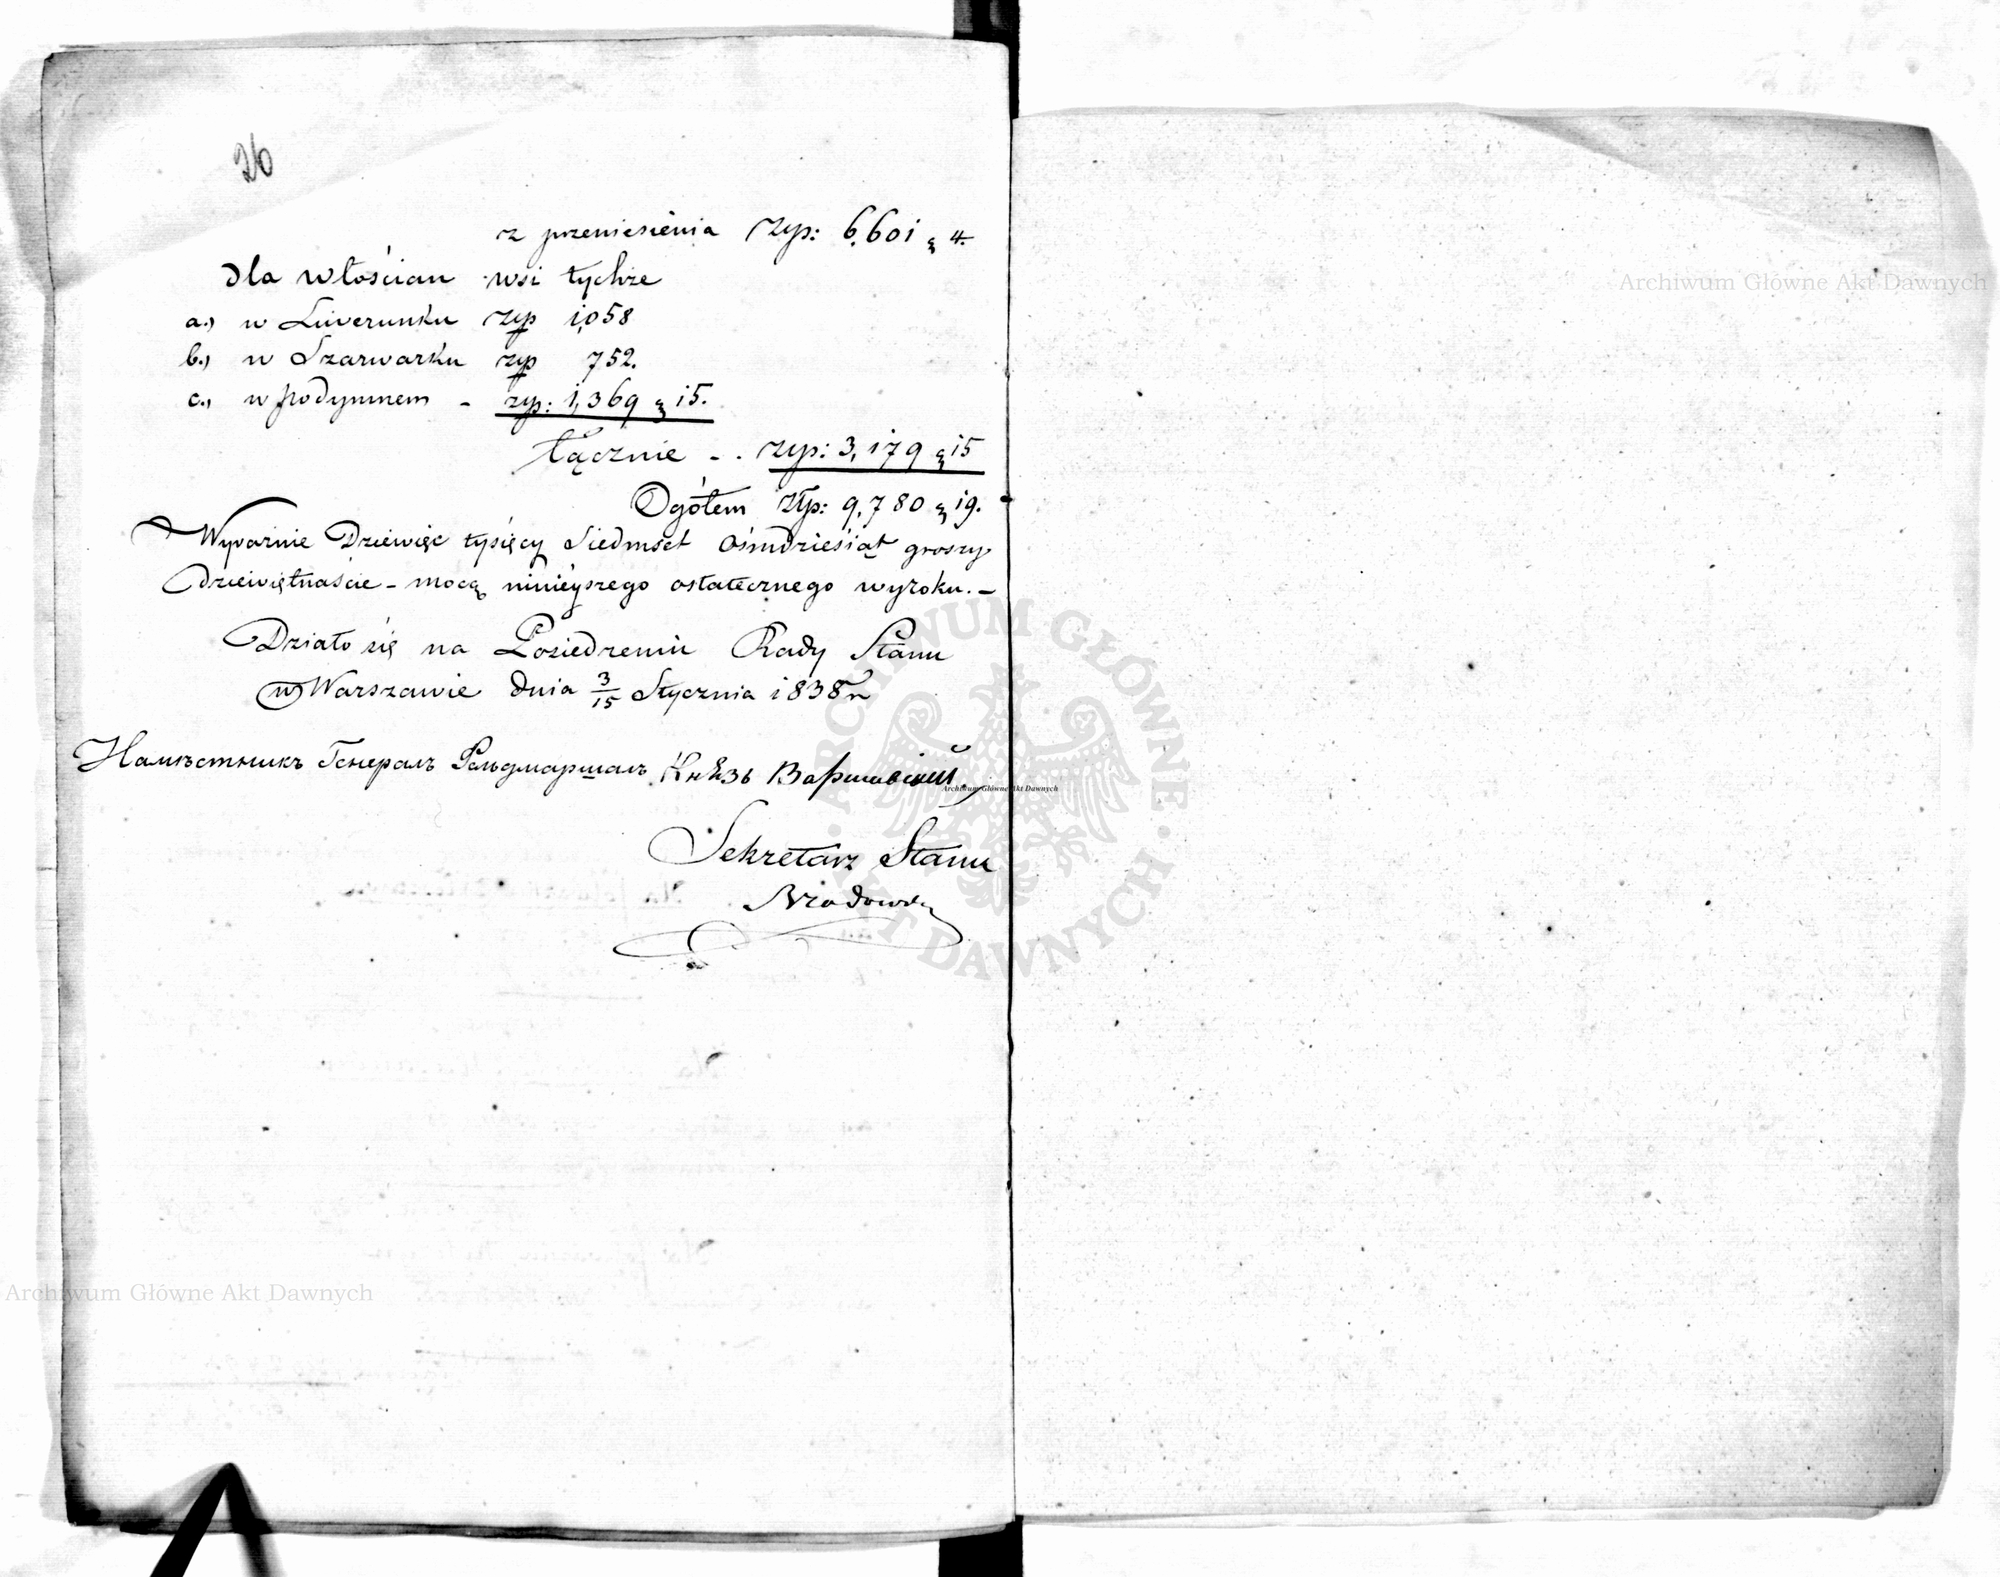 26
z przeniesienia Złp: 6,601 g 4.
dla włościan wsi tychże
a.) w Liwerunku złp 1,058
b.) w Szarwarku złp 752.
c.) w podymnem - złp: 1,369 g 15.
łącznie - . złp: 3,179 g 15
Ogółem złp: 9,780 g 19.
Wyraźnie Dziewięć tysięcy Siedmset Ośmdziesiąt groszy
dziewiętnaście - mocą ninieyszego ostatecznego wyroku. -
Działo się na Posiedzeniu Rady Stanu
w Warszawie dnia 3/15 Stycznia 1838 r
Намѣстникъ Генералъ Фельдмаршалъ Князь Варшавскій
Sekretarz Stanu
Archiwum Główne Akt Dawnych
Archiwum Główne Akt Dawnych
Archiwum Główne Akt Dawnych
ARCHIWUM GŁÓWNE AKT DAWNYCH